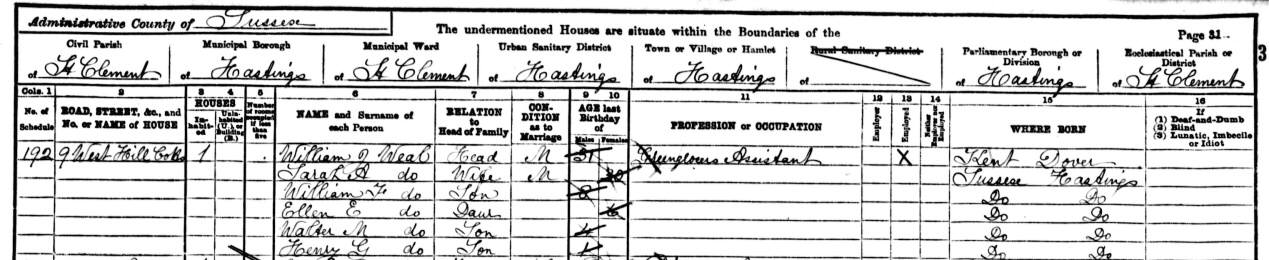 Administrative County of Sussex
The undermentioned Houses are situate within the Boundaries of the
Page 31
Civil Parish of St Clement
Municipal Borough of Hastings
Municipal Ward of St Clement
Urban Sanitary District of Hastings
Town or Village or Hamlet of Hastings
Rural Sanitary District of
Parliamentary Borough or Division of Hastings
Ecclesiastical Parish or District of St Clement
3
Cols. 1 2 3 4 5 6 7 8 9 10 11 12 13 14 15 16
No. of Schedule
ROAD, STREET, &c., and No. or NAME of HOUSE
HOUSES
Inhabited
Uninhabited (U.), or Building (B.)
Number of rooms occupied if less than five
NAME and Surname of each Person
RELATION to Head of Family
CONDITION as to Marriage
AGE last Birthday of
Males Females
PROFESSION or OCCUPATION
Employer
Employed
Neither Employer nor Employed
WHERE BORN
If
(1) Deaf-and-Dumb
(2) Blind
(3) Lunatic, Imbecile or Idiot
192 9 West Hill Cotts 1 William J Weal Head M 31 Assistant X Kent Dover
Sarah A do Wife M 30 Sussex Hastings
William F do Son 8 Do Do
Ellen E do Daur 6 Do Do
Walter M do Son 4 Do Do
Henry G do Son 1 Do Do